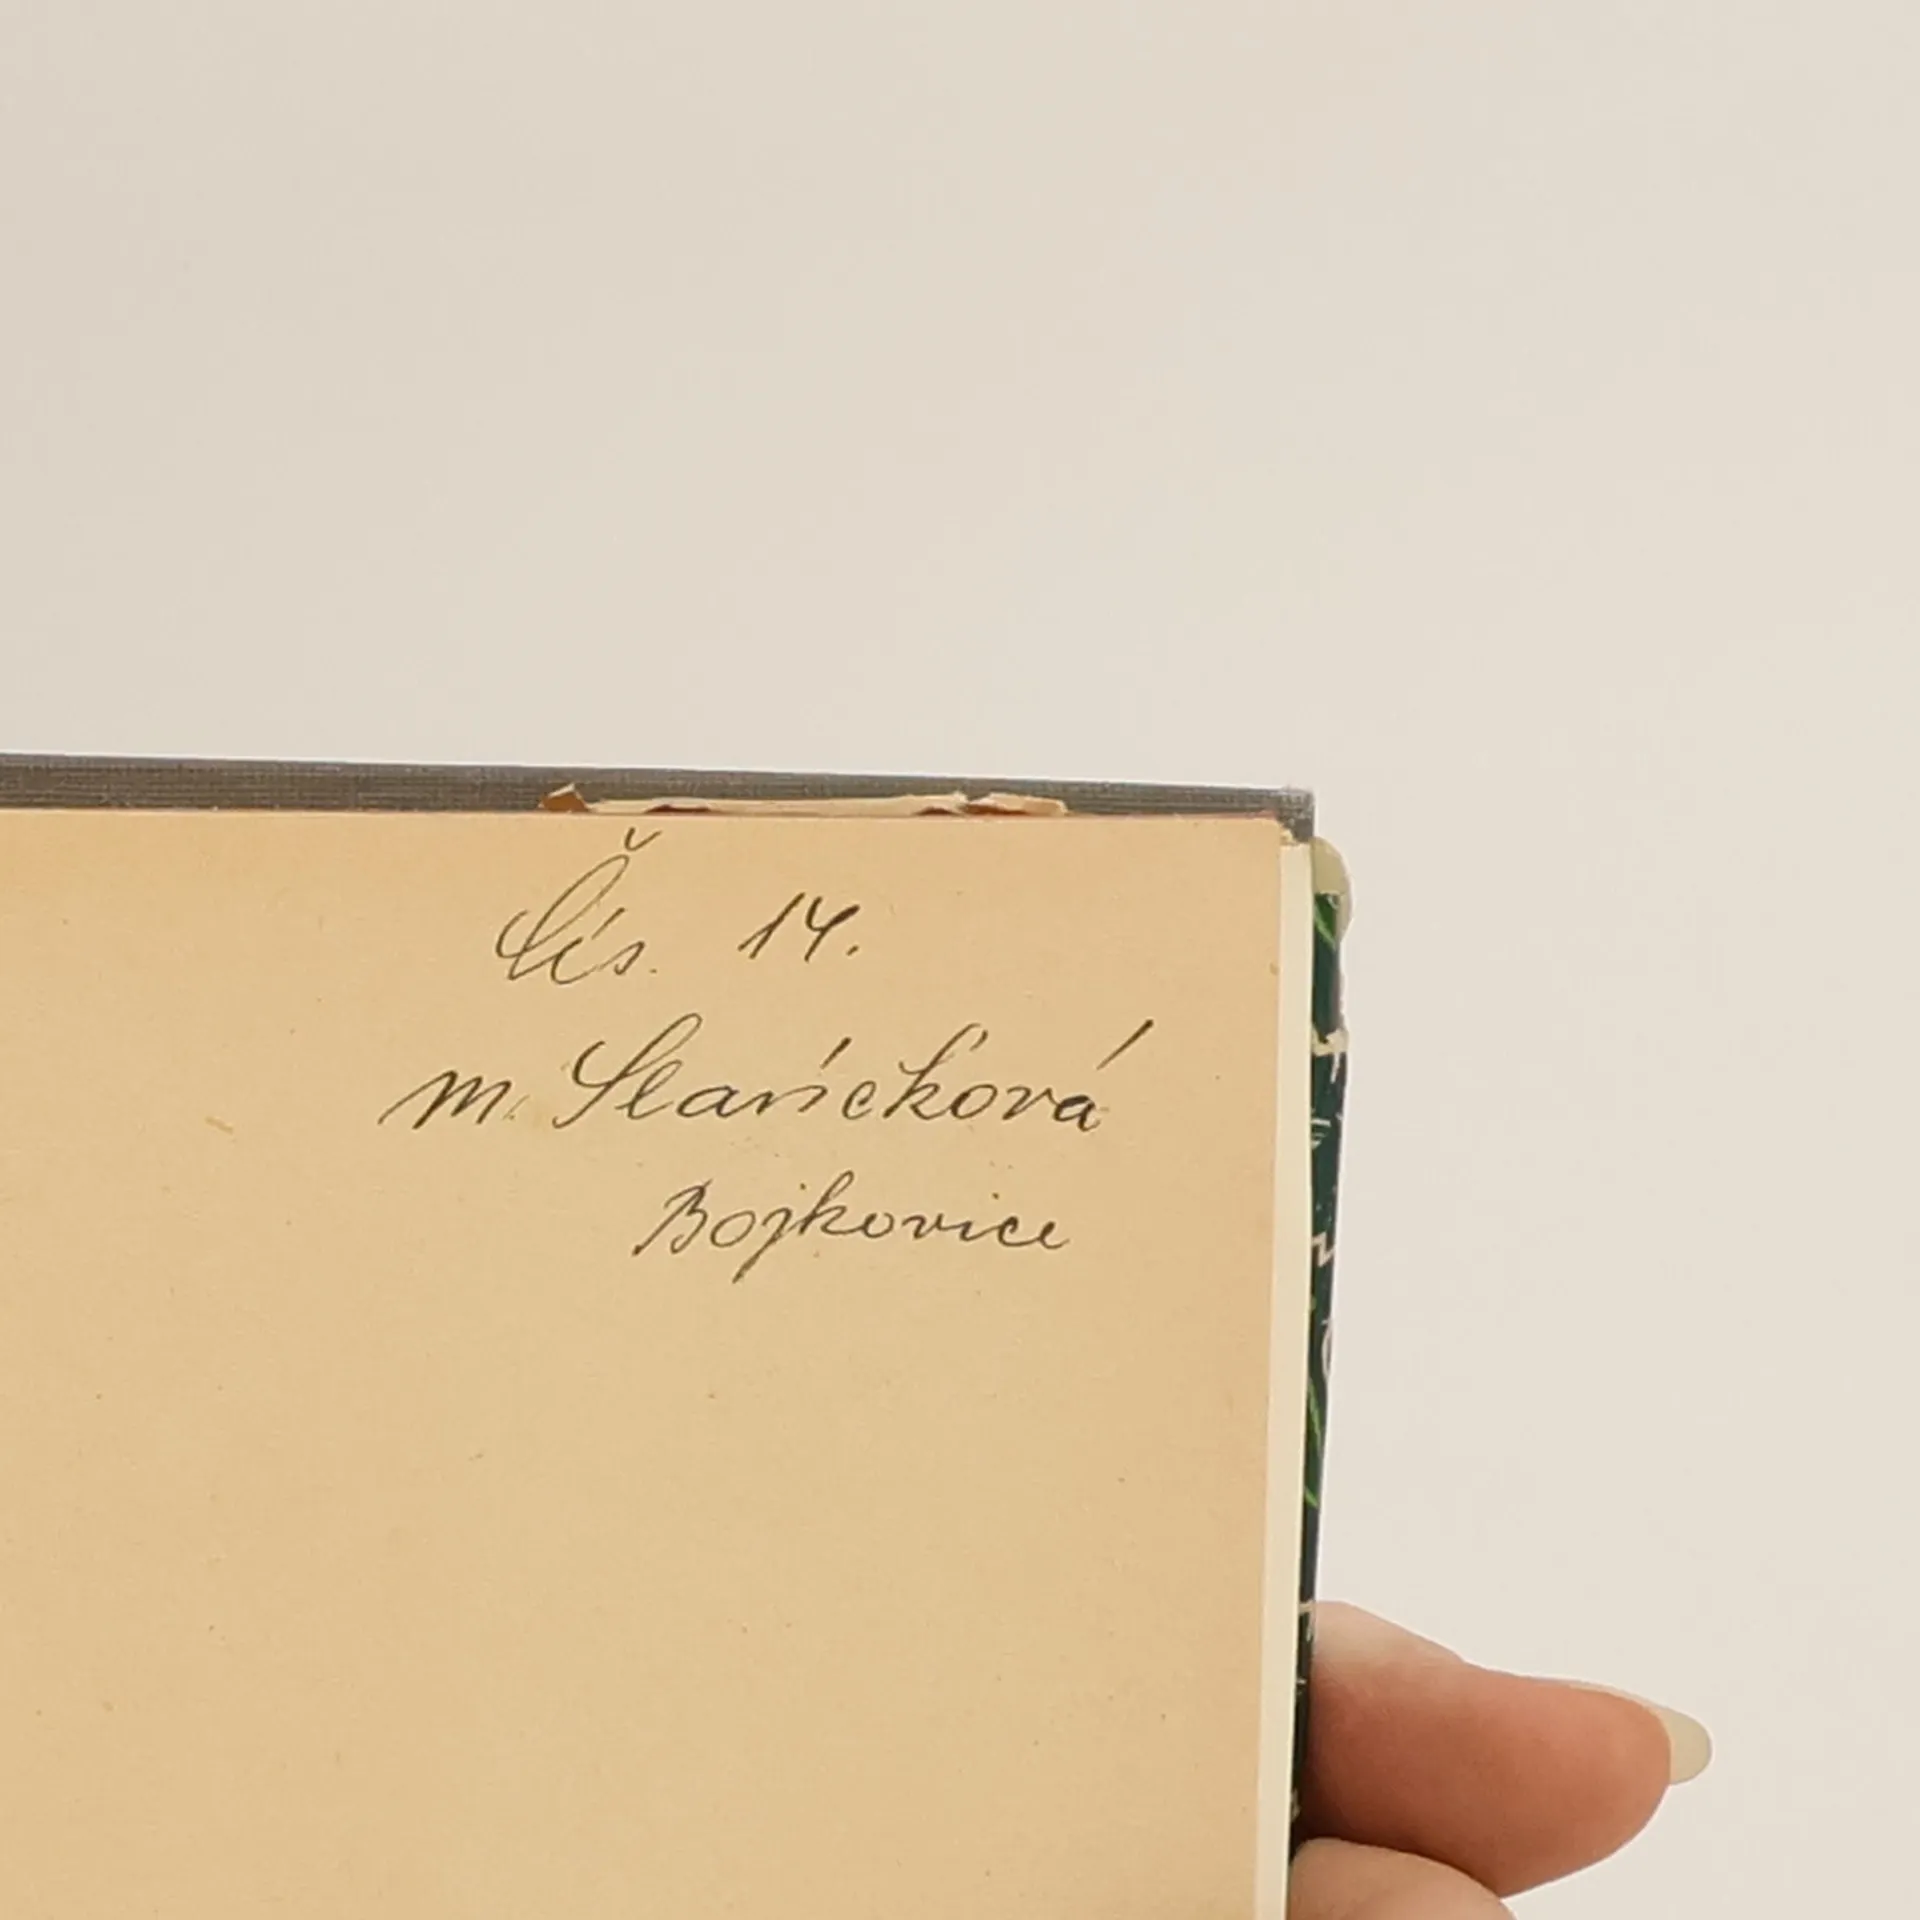 Čís. 14.
M. Slaníčková
Bojkovice